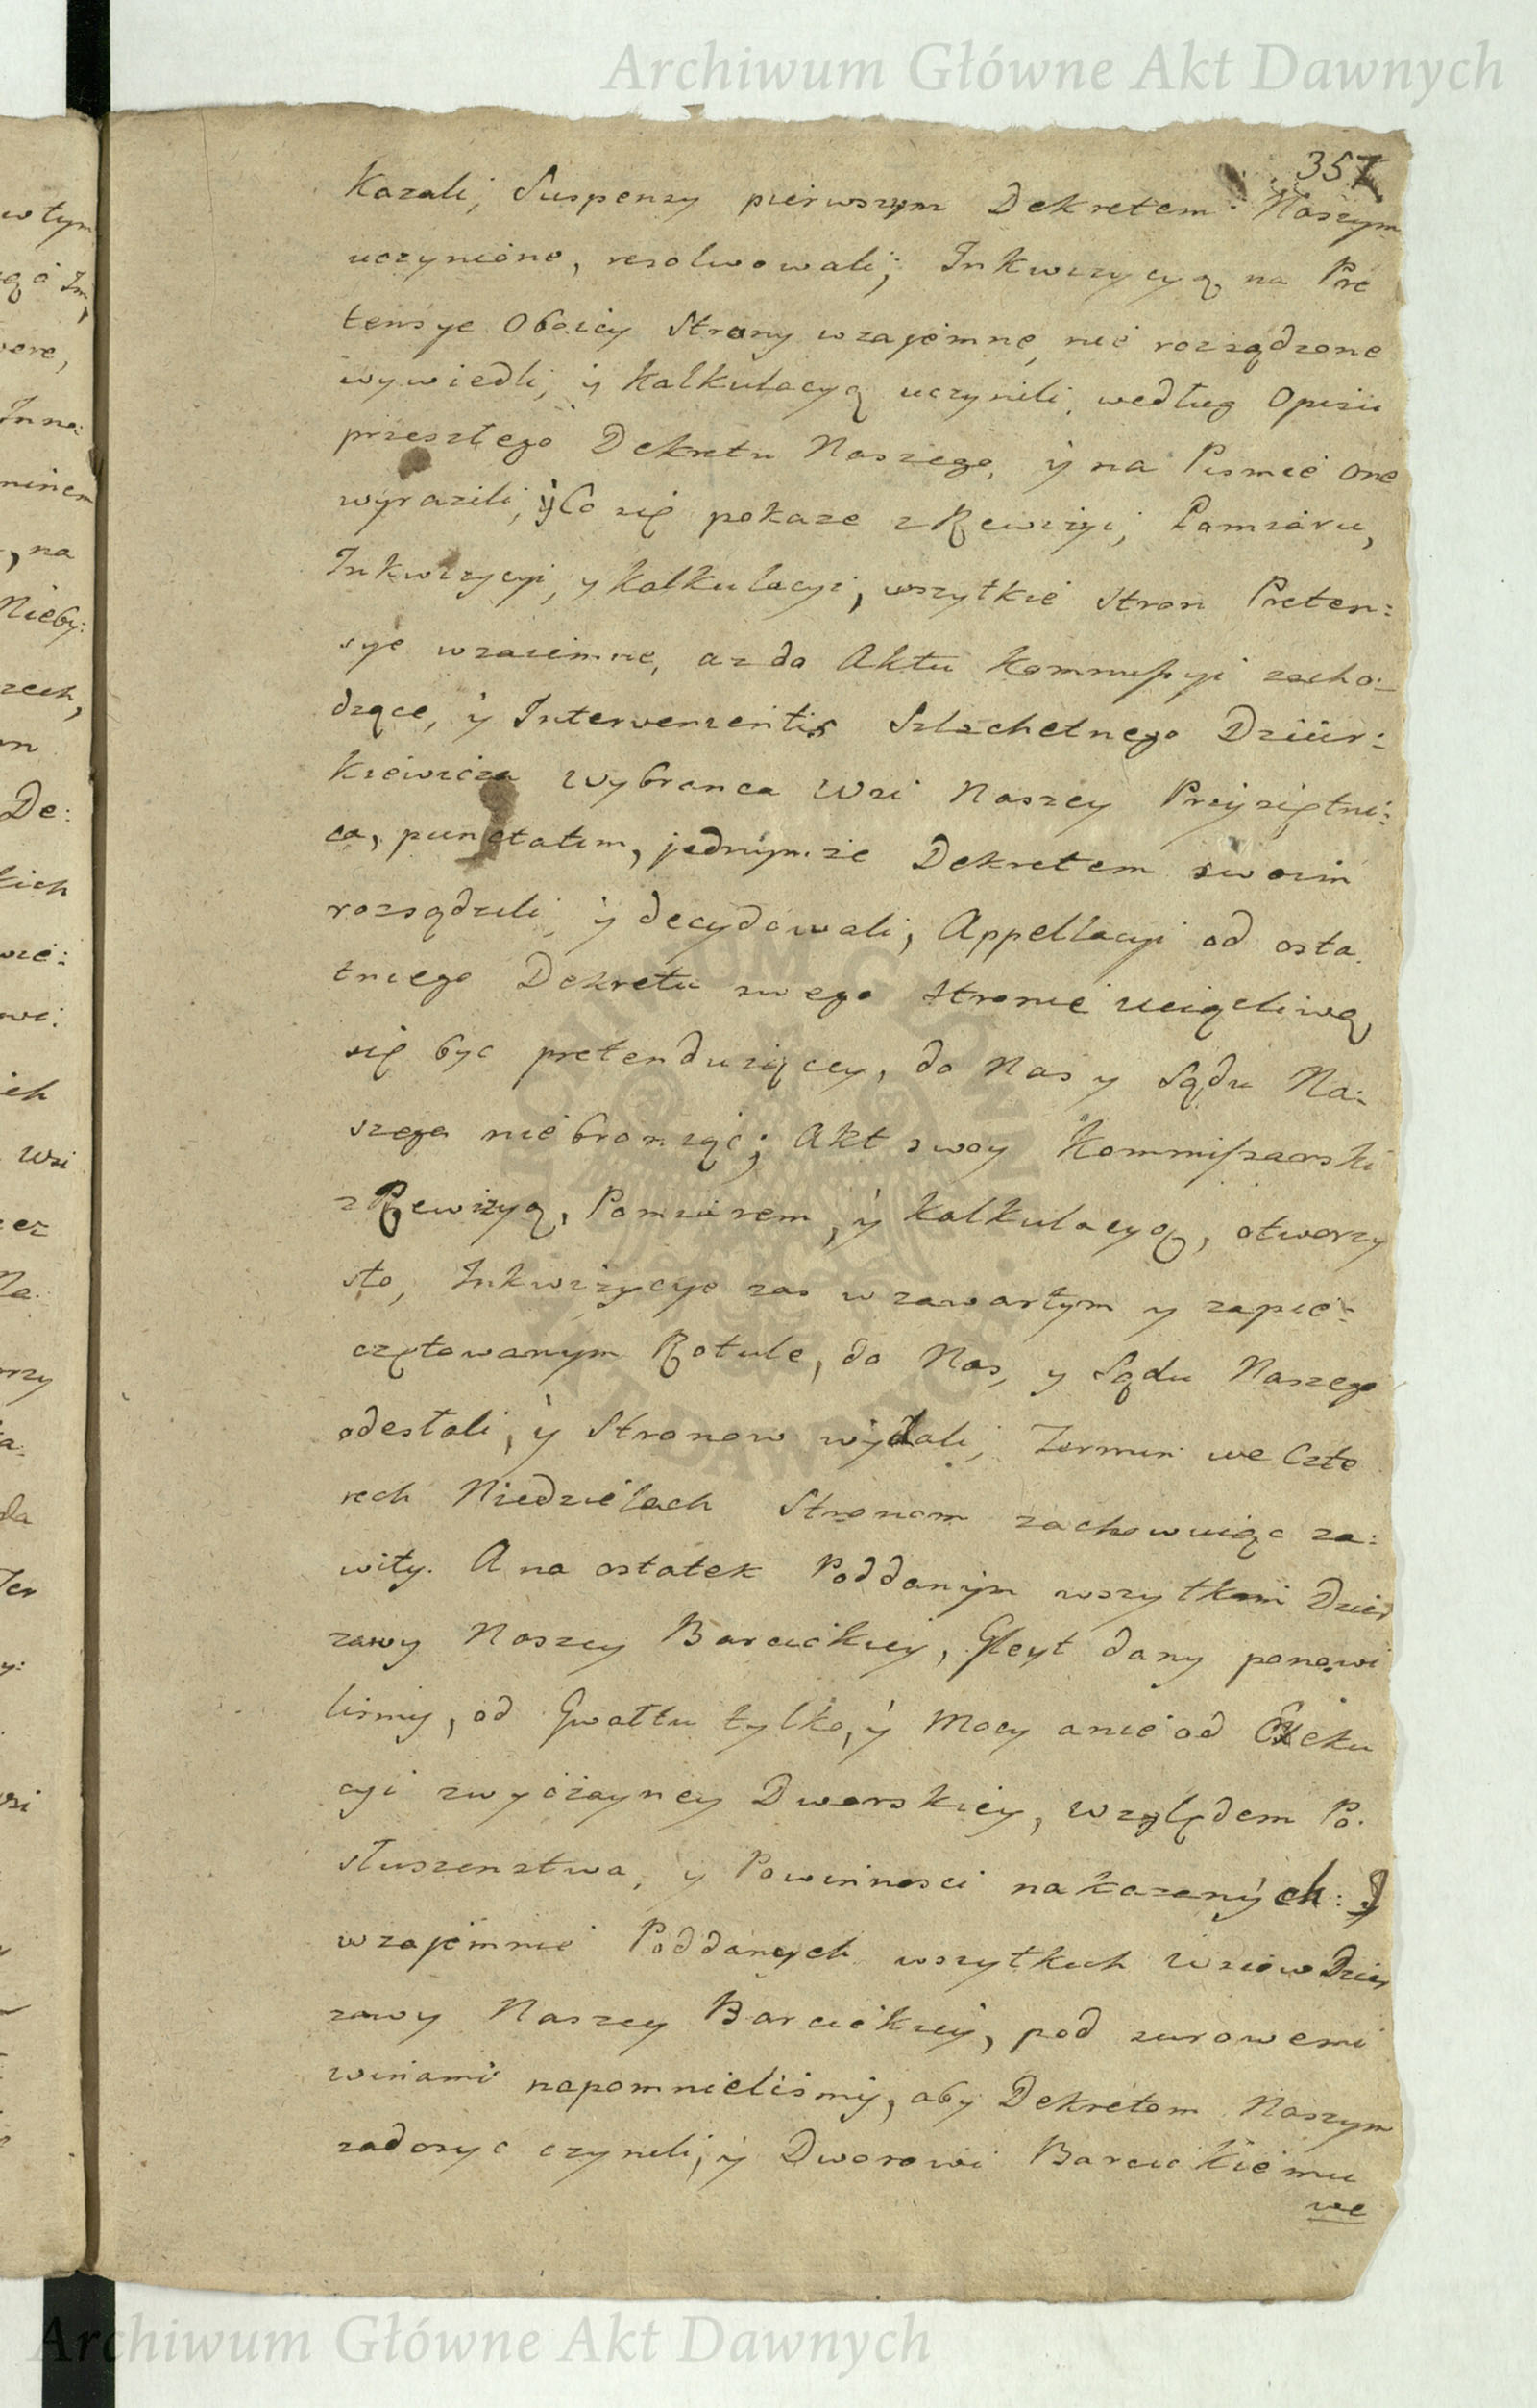 Archiwum Główne Akt Dawnych
357
Kazali, Suspensy pierwszym Dekretem Naszym
uczynione, resolwowali; Inkwizycyą na Pre
tensye Oboiey Strony wzajemne, nie rozsądzone
wywiedli, y Kalkulacyą uczynili, według Opisu
przeszłego Dekretu Naszego, y na Pismie one
wyrazili, y Co się pokaze z Rewizyi, Pomiaru,
Inkwizycyi, y Kalkulacyi, wszytkie Stron Preten:
sye wzaiemne, az do Aktu Kommissyi zacho:
dzące, y Interwenientis Szlachetnego Dziur:
kiewicza Wybranca Wsi Naszey Przysietni:
ca, punctatim, jednymze Dekretem swoim
rozsądzili y decydowali, Appellacyi od osta
tniego Dekretu swego Stronie uciązliwą
się byc pretenduiącey, do Nas y Sądu Na:
szego niebroniąc; Akt swoy Kommissarski
z Rewizyą, Pomiarem, y Kalkulacyą, otworzy
sto, Inkwizycye zas w zawartym y zapie:
czętowanym Rotule, do Nas, y Sądu Naszego
odesłali, y Stronom wydali, Termin we Czte
rech Niedzielach Stronom zachowuiąc za:
wity. A na ostatek Poddanym wszytkim Dzier
zawy Naszey Barcickiey, Gleyt dany ponowi
lismy, od Gwałtu tylko, y Mocy a nie od Exeku
cyi zwyczayney Dworskiey, Względem Po
słuszenstwa, y Powinnosci nakazanych: Y
wzajemnie Poddanych wszytkich Wsiow Dzier
zawy Naszey Barcickiey, pod surowemi
winami napomnielismy, aby Dekretom Naszym
zadosyc czynili, y Dworowi Barcickiemu
we
Archiwum Główne Akt Dawnych